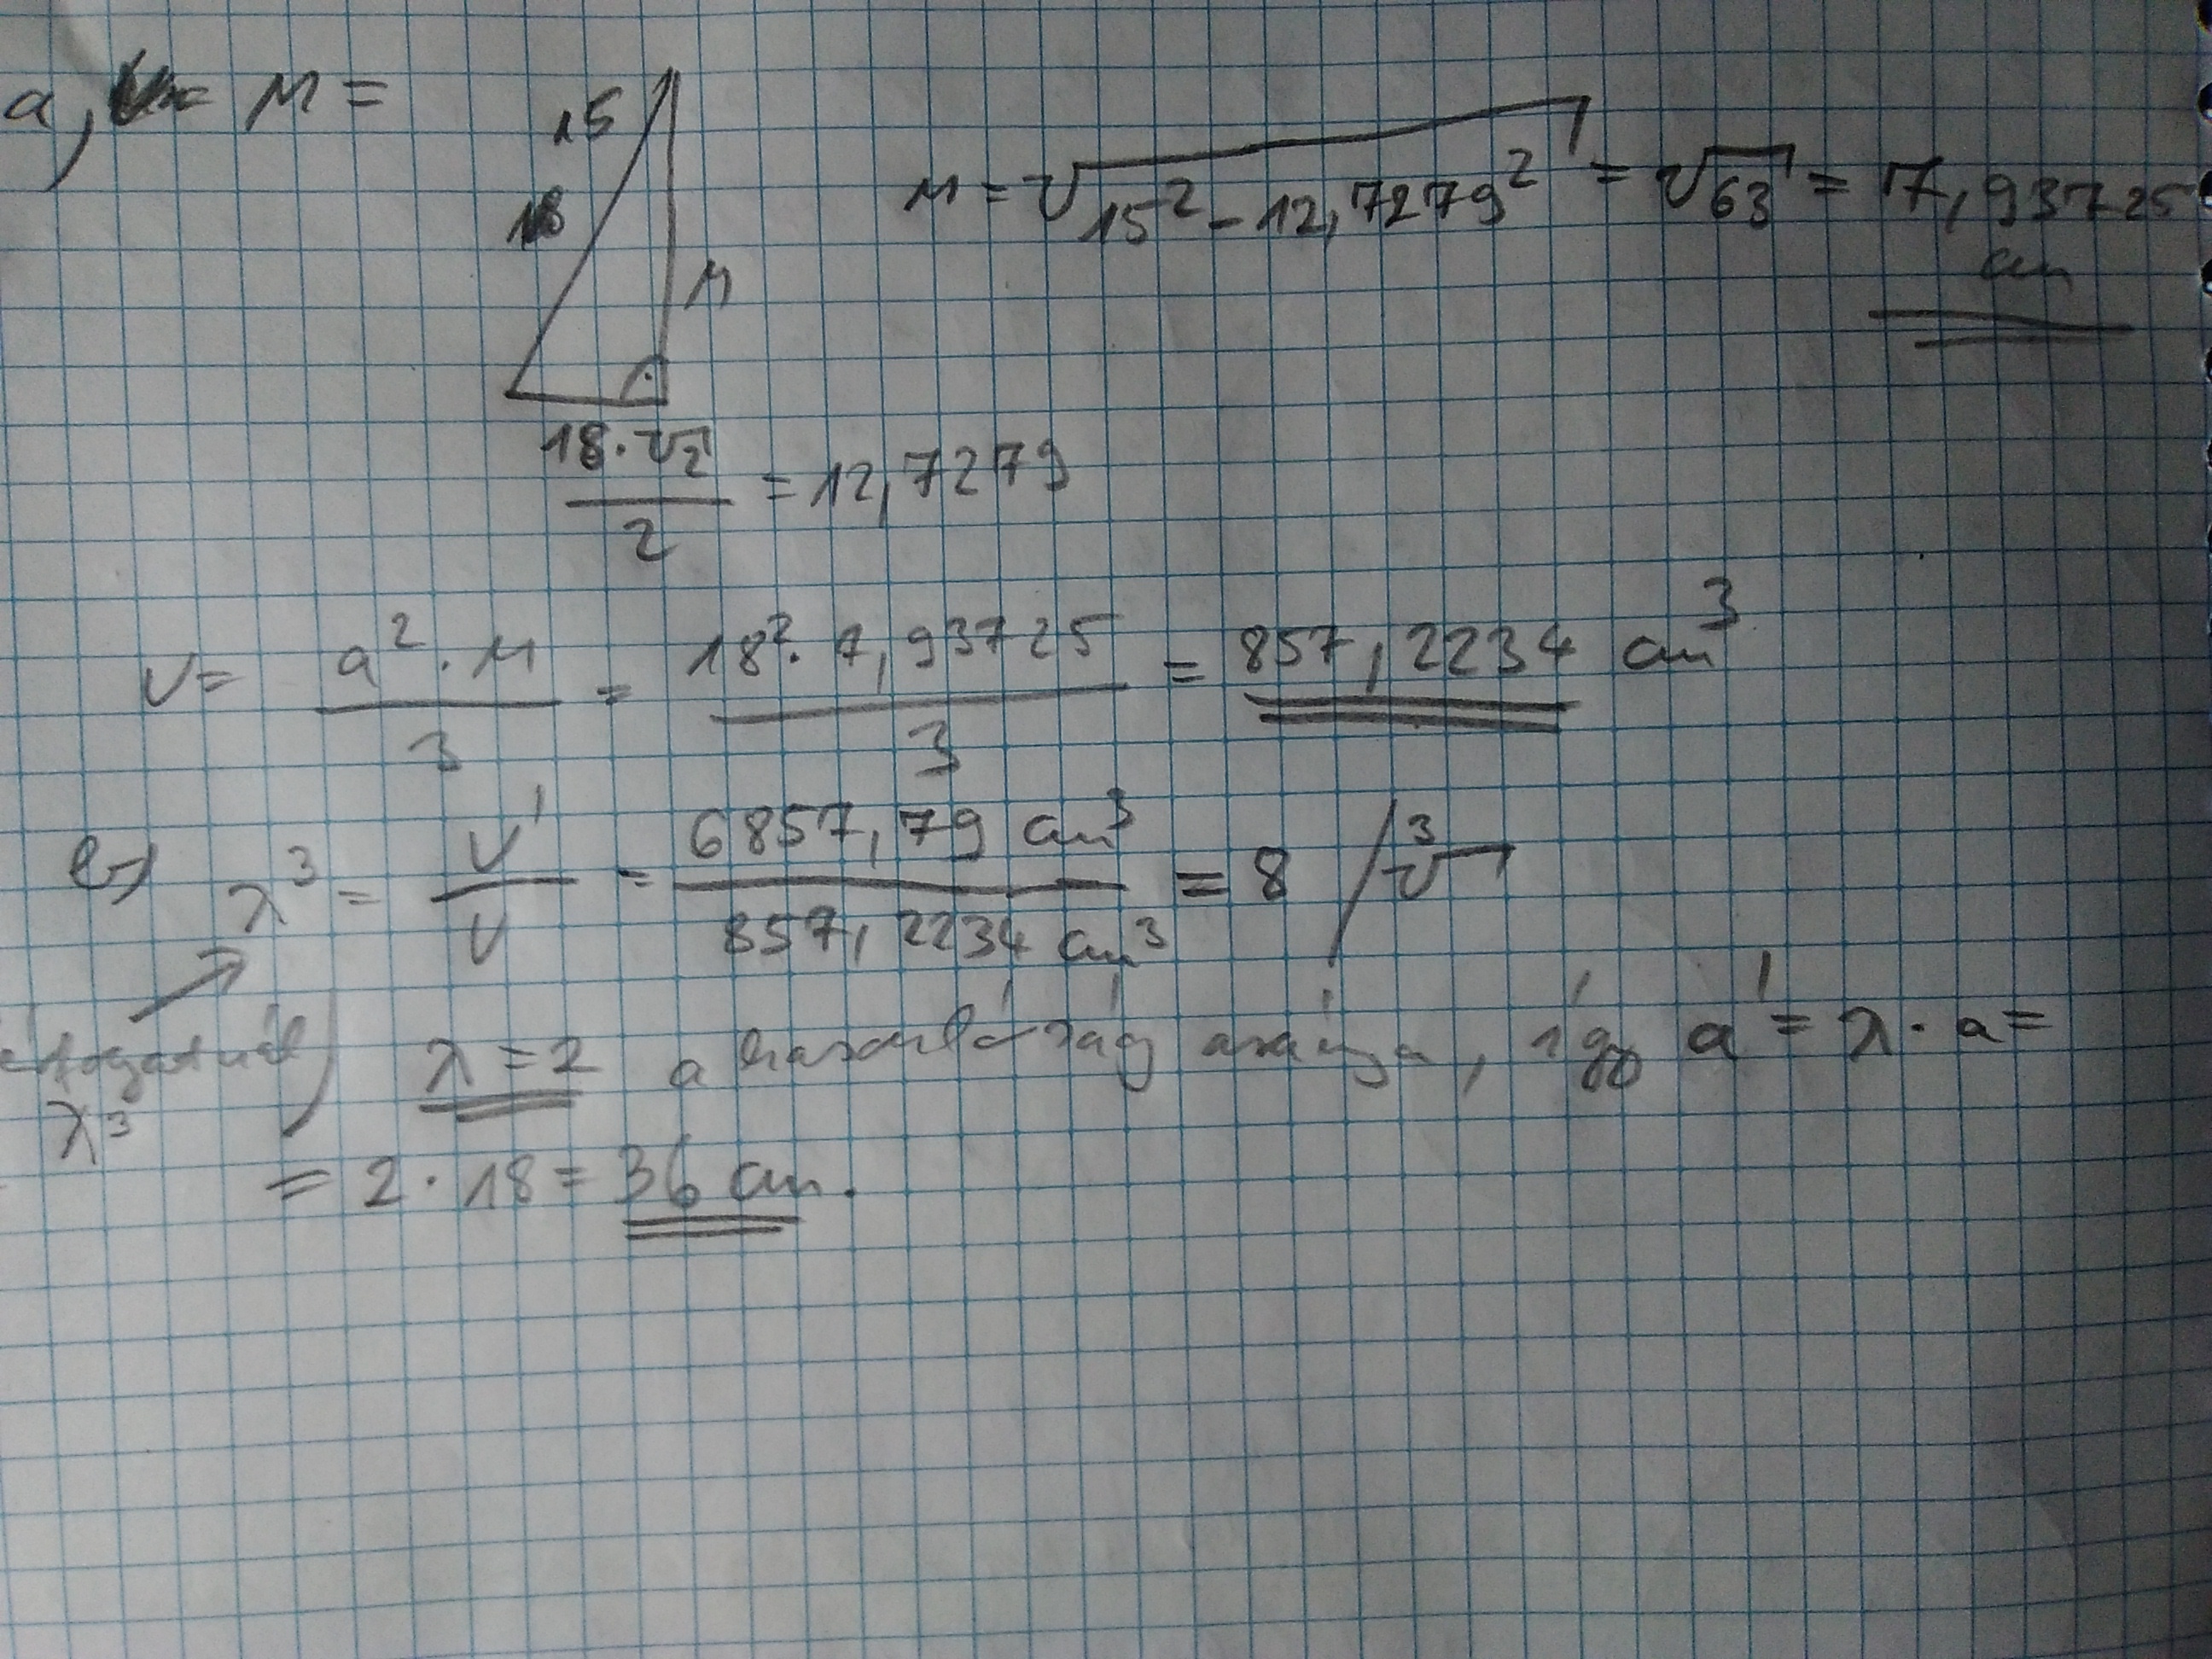 a, M =
15
18
M
M = √15² - 12,7279² = √63 = 7,93725 cm
18·√2 / 2 = 12,7279
V = a²·M / 3 = 18²·7,93725 / 3 = 857,2234 cm³
b) λ³ = V' / V = 6857,79 cm³ / 857,2234 cm³ = 8 /∛
λ³
λ = 2 a hasonlóság aránya, így a' = λ·a =
= 2·18 = 36 cm.